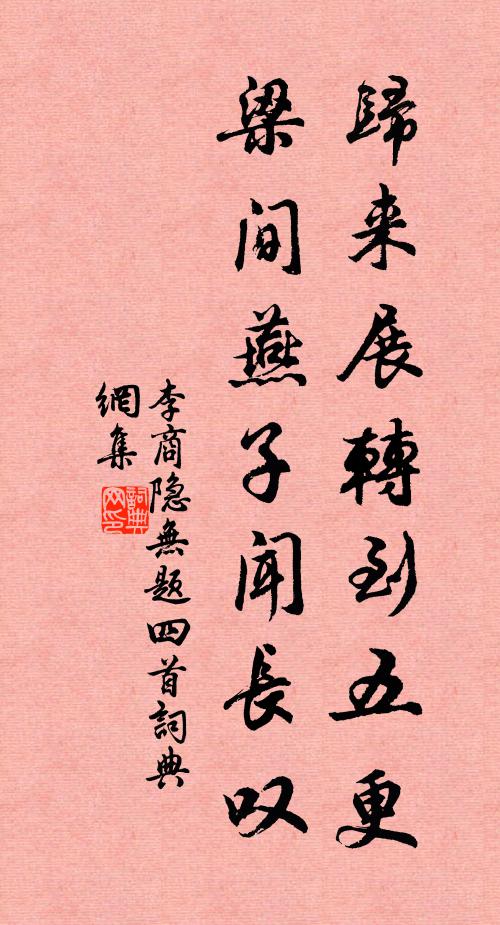 歸来展轉到五更
梁间燕子聞長叹
李商隐無题四首詞典
網集
詞典
网印